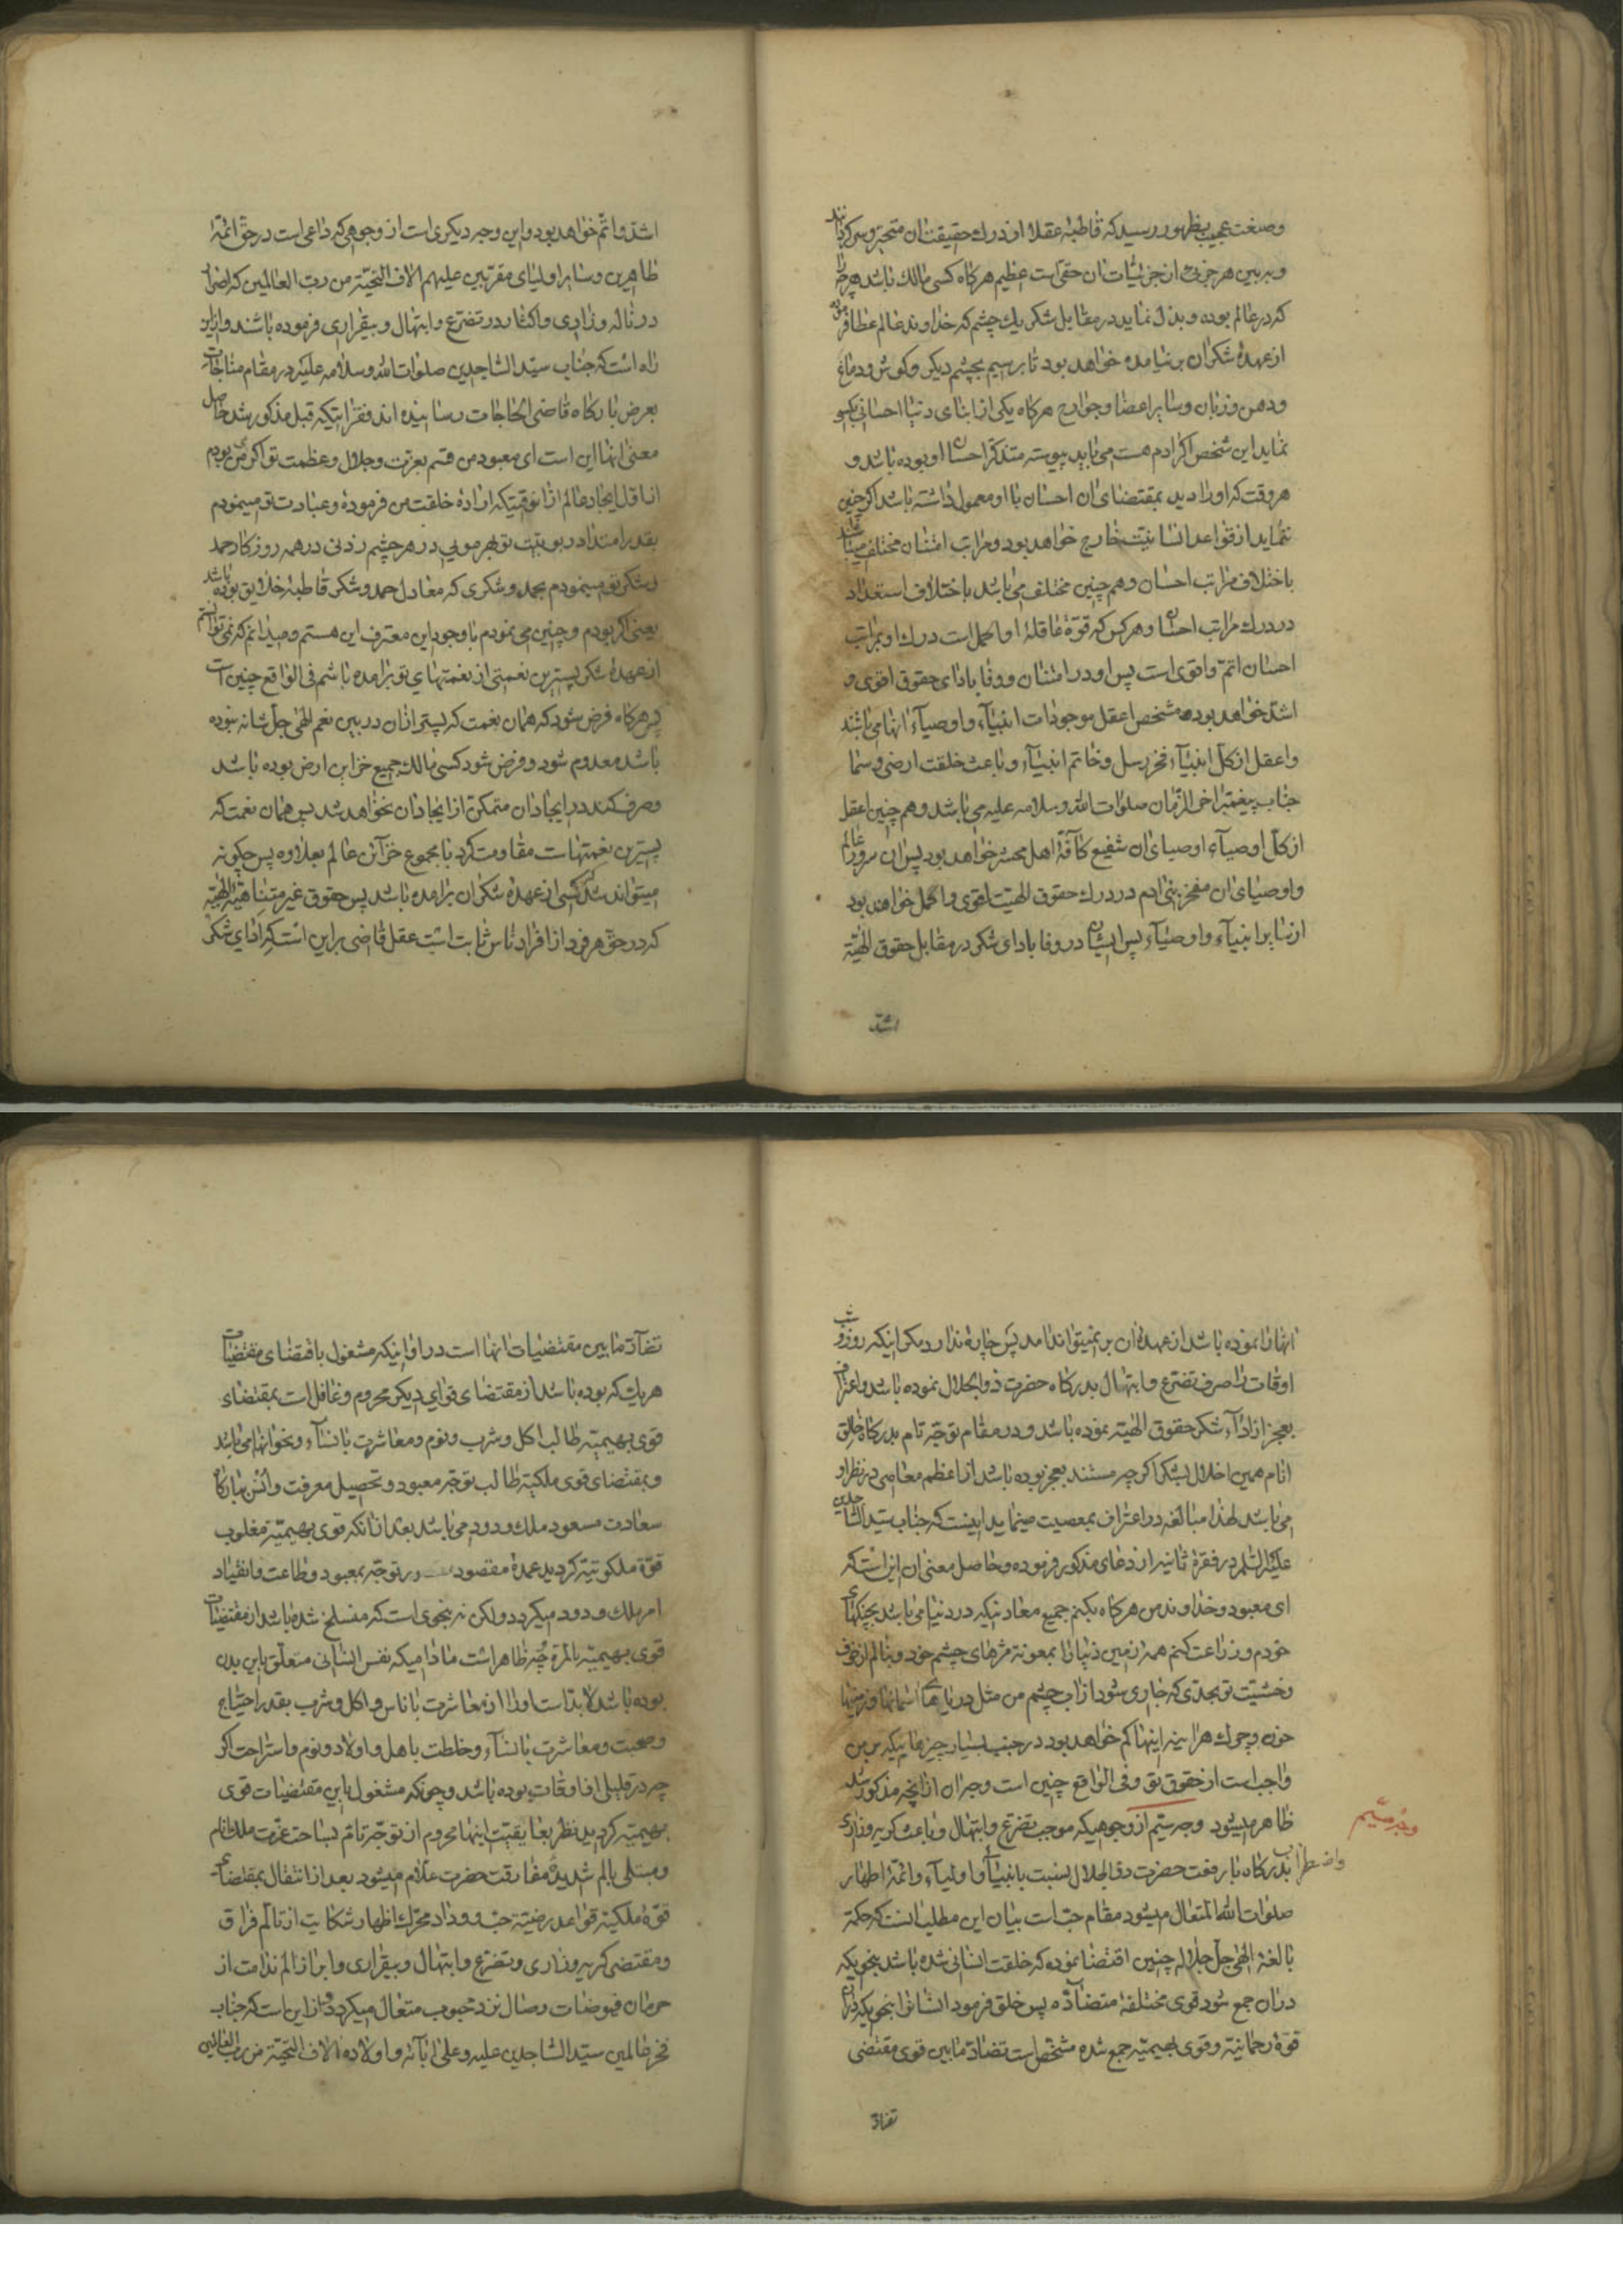 وصنعت عجیب بظهور رسیده که قاطبهٔ عقلا از درک حقیقت ان متحیر و سرکردانند
و بر بین هر جزئی از جزئیات ان حقی است عظیم هرکاه کسی مالک باشد هرچه را
که در عالم بوده و بذل نماید در مقابل شکر یک چشم که خداوند عالم عطا فرموده
از عهدهٔ شکر ان بر نیامده خواهد بود تا برسیم بچشم دیکر و کوش و دماغ
و دهن و زبان و سایر اعضا و جوارح هرکاه یکی از ابنای دنیا احسانی بکسی
نماید این شخص اکر ادم هست می باید پیوسته متذکر احسان او بوده باشد و
هر وقت که او را دید بمقتضای ان احسان با او معمول داشته باشد اکر چنین
ننماید از قواعد انسانیت خارج خواهد بود و مراتب امتنان مختلف میباشد
باختلاف مراتب احسان و هم چنین مختلف می باشد باختلاف استعداد
در درک مراتب احسان و هر کس که قوة عاقلهٔ او اکمل است درک او بمراتب
احسان اتم و اقوی است پس او در امتنان و وفا بادای حقوق اقوی و
اشد خواهد بود و مشخص اعقل موجودات انبیآء و اوصیآء انها می باشند
و اعقل از کل انبیآء فخر رسل و خاتم انبیآء و باعث خلقت ارض و سما
جناب پیغمبر اخر الزمان صلوات الله و سلامه علیه می باشد و هم چنین اعقل
از کل اوصیآء اوصیای ان شفیع کآفهٔ اهل محشر خواهد بود پس ان سرور عالم
و اوصیای ان مفخر بنی ادم در درک حقوق الهیت اقوی و اکمل خواهند بود
از سایر انبیآء و اوصیآء پس ایشان در وفا بادای شکر در مقابل حقوق الهیة
اشد
اشد و اتم خواهد بود و این وجه دیکری است از وجوهی که داعی است در حق ائمهٔ
طاهرین و سایر اولیای مقربین علیهم الاف التحیة من رب العالمین که اصرار
در ناله و زاری و اکثار در تضرع و ابتهال و بیقراری فرموده باشند و از این
راه است که جناب سید الساجدین صلوات الله و سلامه علیه در مقام مناجات
بعرض بارکاه قاضی الحاجات رسانیده اند فقراتیکه قبل مذکور شد حاصل
معنی انها این است ای معبود من قسم بعزت و جلال و عظمت تو اکر من بودم
از اول ایجاد عالم از انوقتیکه ارادهٔ خلقت من فرمودهٔ و عبادت تو مینمودم
بقدر امتداد ربوبیت تو بهر مویی در هر چشم زدنی در همه روزکار حمد
و شکر تو مینمودم بحمد و شکری که معادل حمد و شکر قاطبهٔ خلایق بوده باشد
یعنی اکر بودم و چنین می نمودم با وجود این معترف این هستم و میدانم که نمی توانستم
از عهدهٔ شکر پسترین نعمتی از نعمتهای تو برامده باشم فی الواقع چنین است
پس هرکاه فرض شود که همان نعمت که پستر از ان در بین نعم الهی جل شانه نبوده
باشد معدوم شود و فرض شود کسی مالک جمیع خزاین ارض بوده باشد
و صرف کند در ایجاد ان متمکن از ایجاد ان نخواهد شد پس همان نعمت که
پسترین نعمتهاست مقاومت کرد با مجموع خزآئن عالم بعلاوه پس چکونه
میتواند شد کسی از عهدهٔ شکر ان برامده باشد پس حقوق غیر متناهیة الهیة
که در حق هر فرد از افراد ناس ثابت است عقل قاضی براین است که اکر ادای شکر
انها را نموده باشد از عهدهٔ ان بر نمیتواند امد پس چاره ندارد مکر اینکه روز و شب
اوقات را صرف تضرع و ابتهال بدرکاه حضرت ذو الجلال نموده باشد و اعتراف
بعجز از ادآء شکر حقوق الهیة نموده باشد و در مقام توجه تام بدرکاه خالق
انام همین اخلال بشکر اکرچه مستند بعجز بوده باشد از اعظم معاصی در نظر او
می باشد لهذا مبالغه در اعتراف بمعصیت مینماید اینست که جناب سید الساجدین
علیه السلم در فقرهٔ ثانیه از دعای مذکور فرموده و حاصل معنی ان این است که
ای معبود و خداوند من هرکاه بکنم جمیع معادنیکه در دنیا می باشد بچنکهای
خودم و زراعت کنم همه زمین دنیا را بمعونهٔ مژهای چشم خود و بنالم از خوف
و خشیت تو بحدی که جاری شود از اب چشم من مثل دریاهای اسمانها و زمینها
خون و چرک هر اینه اینها کم خواهد بود در جنب بسیار چیزهائیکه بر من
واجب است از حقوق تو و فی الواقع چنین است وجه ان از انچه مذکور شد
ظاهر میشود وجه سیم از وجوهیکه موجب تضرع و ابتهال و باعث کریه و زاری
واضطراب
وجه سیم
بدرکاه با رفعت حضرت ذو الجلال نسبت بانبیاء و اولیآء و ائمهٔ اطهار
صلوات الله المتعال میشود مقام حب است بیان این مطلب انست که حکمة
بالغهٔ الهی جل جلاله چنین اقتضا نموده که خلقت انسانی شده باشد بنحویکه
در ان جمع شود قوی مختلفهٔ متضآده پس خلق فرمود انسانرا بنحویکه در او
قوهٔ رحمانیة و قوی بهیمیه جمع شده مشخص است تضاد ما بین قوی مقتضی
تضاد
تضآد ما بین مقتضیات انها است در اوانیکه مشغول باقتضای مقتضیات
هر یک که بوده باشد از مقتضای قوای دیکر محروم و غافل است بمقتضاء
قوی بهیمیه طالب اکل و شرب و نوم و معاشرت با نسآء و نحو انها می باشد
و بمقتضای قوی ملکیة طالب توجه معبود و تحصیل معرفت و انس ببارکاه
سعادت مسعود ملک ودود می باشد بعد از انکه قوی بهیمیة مغلوب
قوة ملکوتیة کردید عمدهٔ مقصود در توجه بمعبود و طاعت و انقیاد
امر ملک ودود میکردد ولکن نه بنحوی است که منسلخ شده باشد از مقتضیات
قوی بهیمیة بالمره چه ظاهر است مادامیکه نفس انسانی متعلق باین بدن
بوده باشد لابد است او را از معاشرت با ناس و اکل و شرب بقدر احتیاج
و صحبت و معاشرت با نسآء و خلطت باهل و اولاد و نوم و استراحت اکر
چه در قلیلی از اوقات بوده باشد و چونکه مشغول باین مقتضیات قوی
بهیمیة کردید نظر بعایقیت اینها محروم از توجه تام بساحت عزت ملک انام
و مبتلی بالم شدید مفارقت حضرت علام میشود بعد از انتقال بمقتضای
قوهٔ ملکیة قواعد رضیة حب و وداد محرک اظهار شکایت از تالم فراق
و مقتضی کریه و زاری و تضرع و ابتهال و بیقراری و ابراز الم ندامت از
حرمان فیوضات وصال نزد محبوب متعال میکردد و از این است که جناب
فخر عالمین سید الساجدین علیه و علی ابآئه و اولاده الاف التحیة من رب العالمین